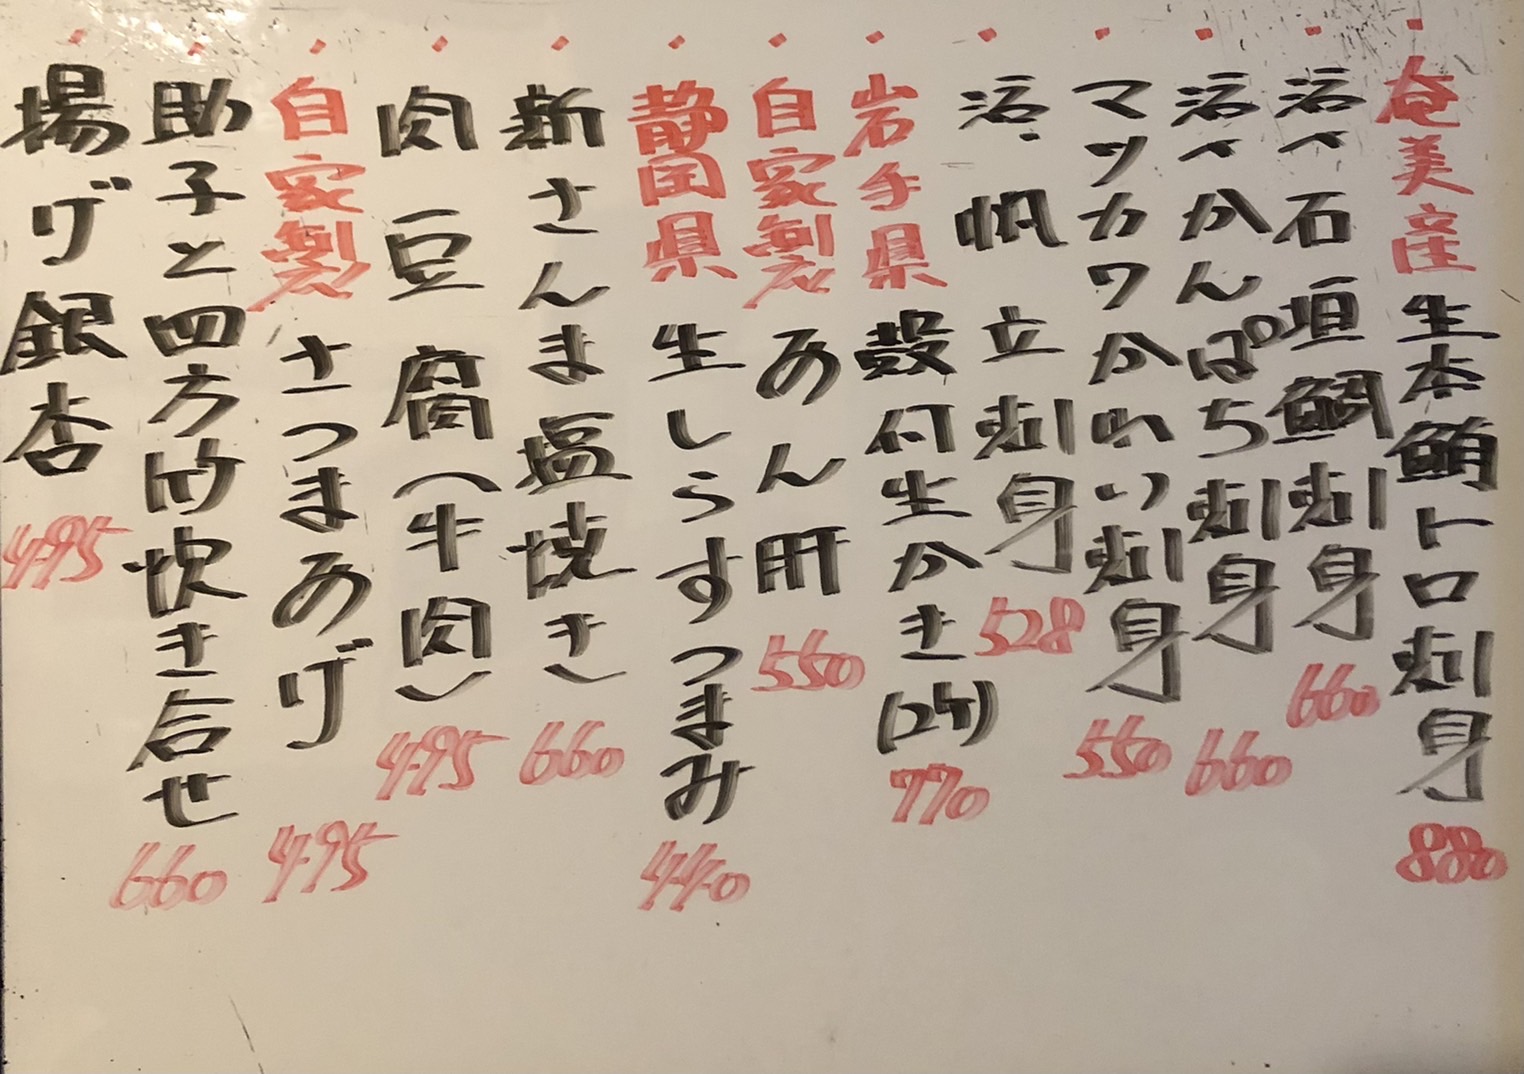 奄美産生本鮪トロ刺身 880
活〆石垣鯛刺身 660
活〆かんぱち刺身 660
マツカワかれい刺身 550
活、帆立刺身 528
岩手県殻付生かき(2ヶ) 770
自家製あん肝 550
静岡県生しらすつまみ 440
新さんま塩焼き 660
肉豆腐(牛肉) 495
自家製さつまあげ 495
助子と四方竹炊き合せ 660
揚げ銀杏 495